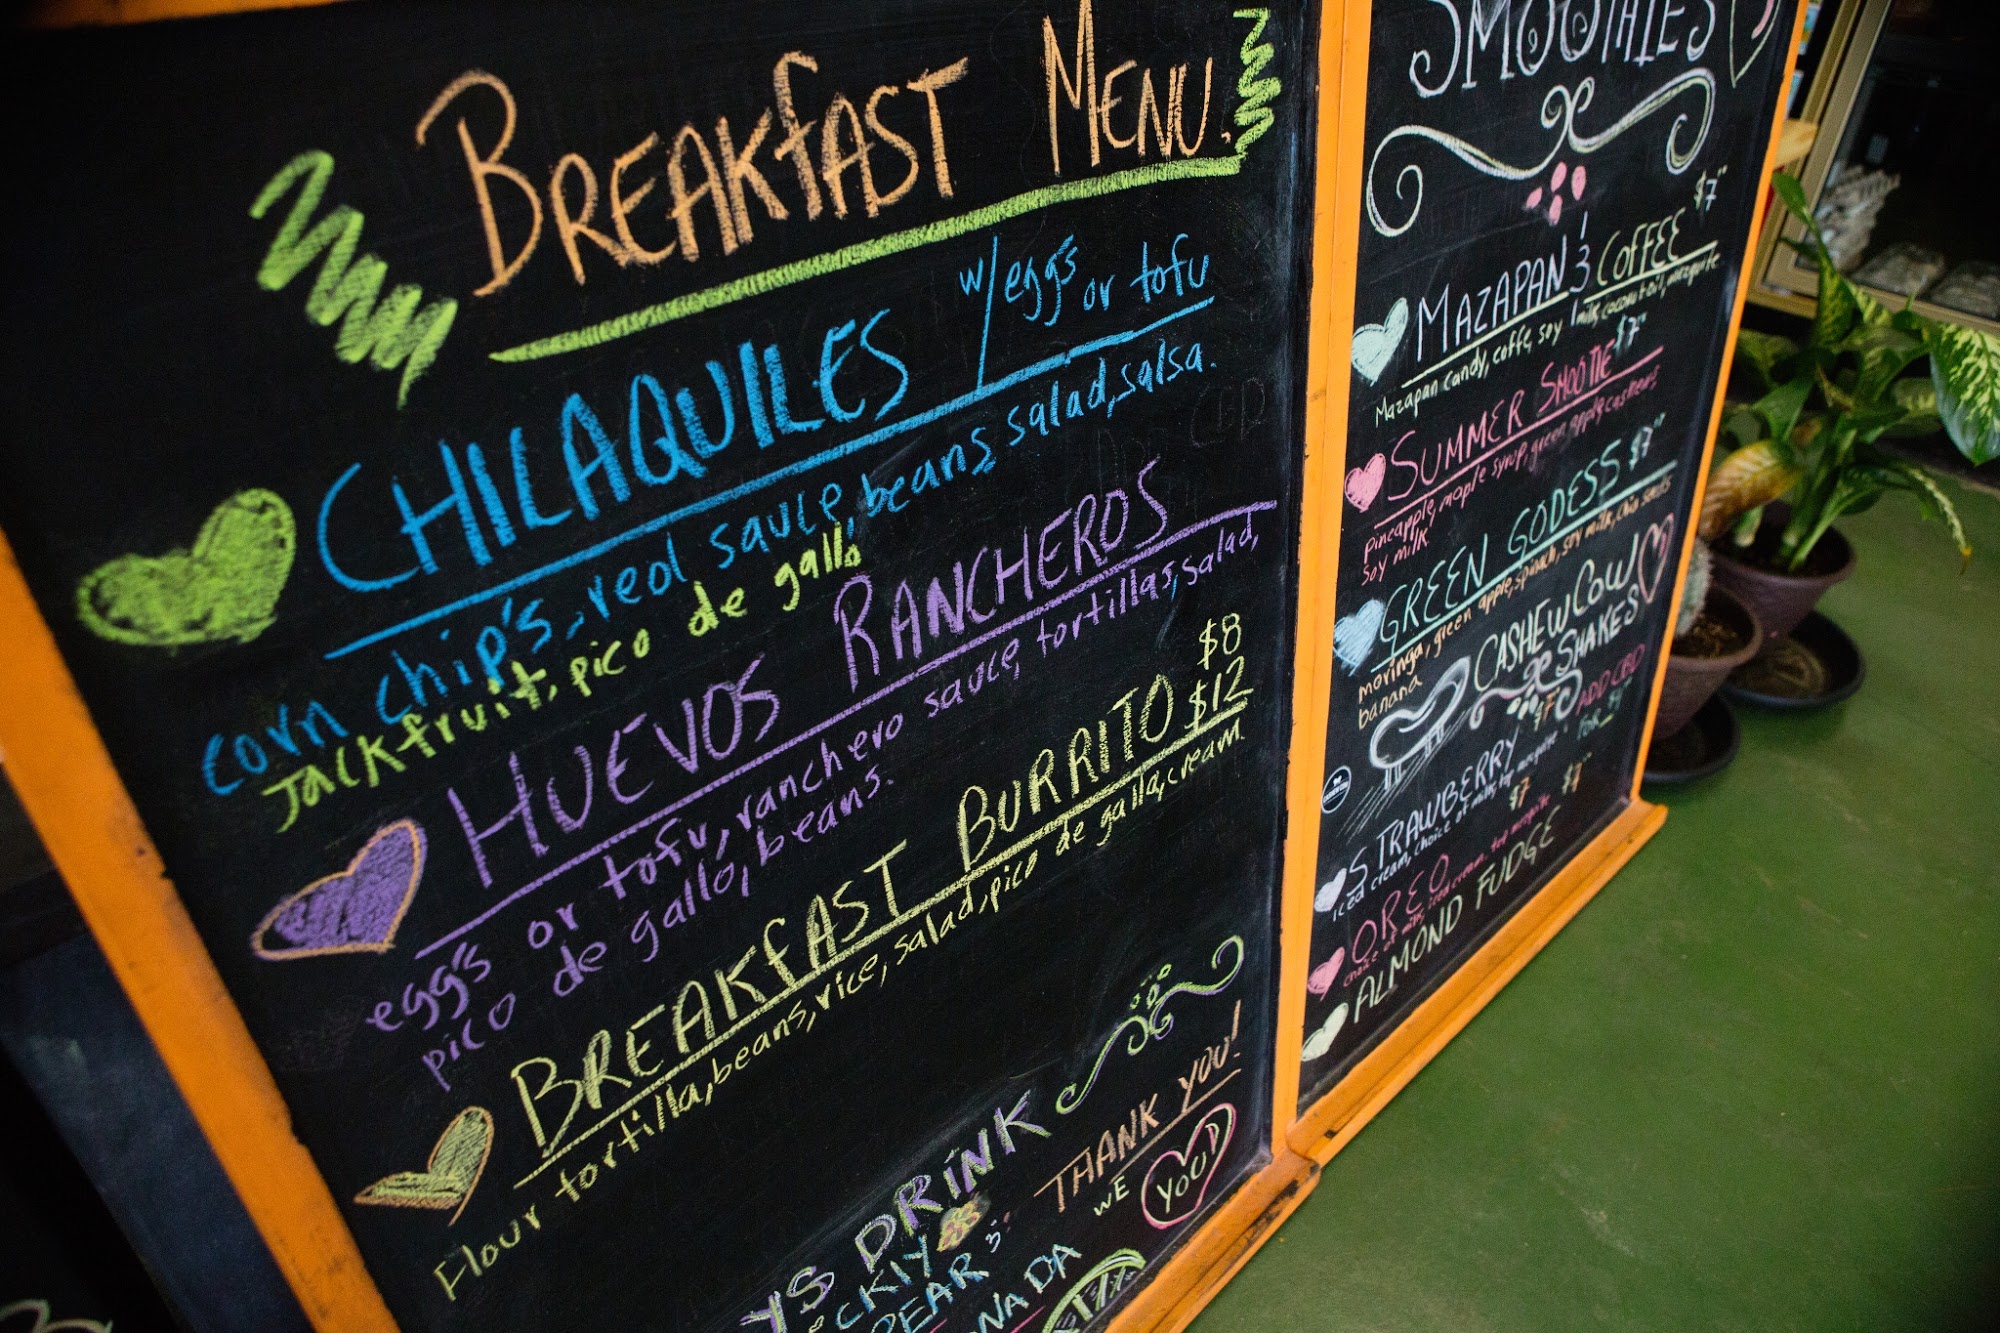 BREAKFAST MENU.
CHILAQUILES w/egg's or tofu
corn chip's, red sauce, beans, salad, salsa.
Jackfruit, pico de gallo
HUEVOS RANCHEROS
egg's or tofu, ranchero sauce, tortillas, salad,
pico de gallo, beans.
$8
BREAKFAST BURRITO $12
Flour tortilla, beans, rice, salad, pico de gallo, cream.
YS DRINK
CKIY
PEAR 3
NADA
THANK YOU!
WE YOU
SMOOTHIES
MAZAPAN & COFFEE $7
Mazapan candy, coffe, soy milk, coconut oil, mezquite
SUMMER SMOOTIE $7
Pineapple, maple syrup, green apple, cashews
soy milk
GREEN GODESS $7
moringa, green apple, spinach, soy milk, chia seeds
banana
CASHEW COW
SHAKES
$7 ADD CBD
FOR $4
STRAWBERRY
iced cream, choice of milk, top mezquite
OREO $7
choice of milk, iced cream, top mezquite
ALMOND FUDGE $7